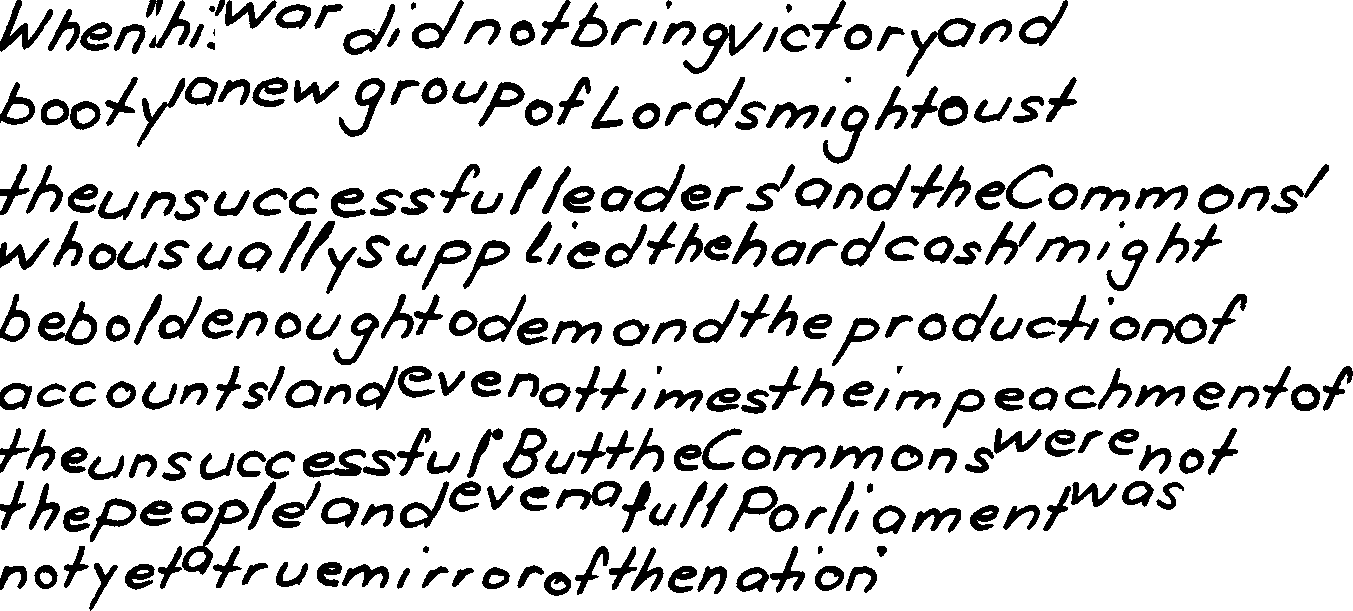 When his war did not bring victory and
booty, a new group of Lords might oust
the unsuccessful leaders, and the Commons,
who usually supplied the hard cash, might
be bold enough to demand the production of
accounts, and even at times the impeachment of
the unsuccessful. But the Commons were not
the people, and even a full Parliament was
not yet a true mirror of the nation.